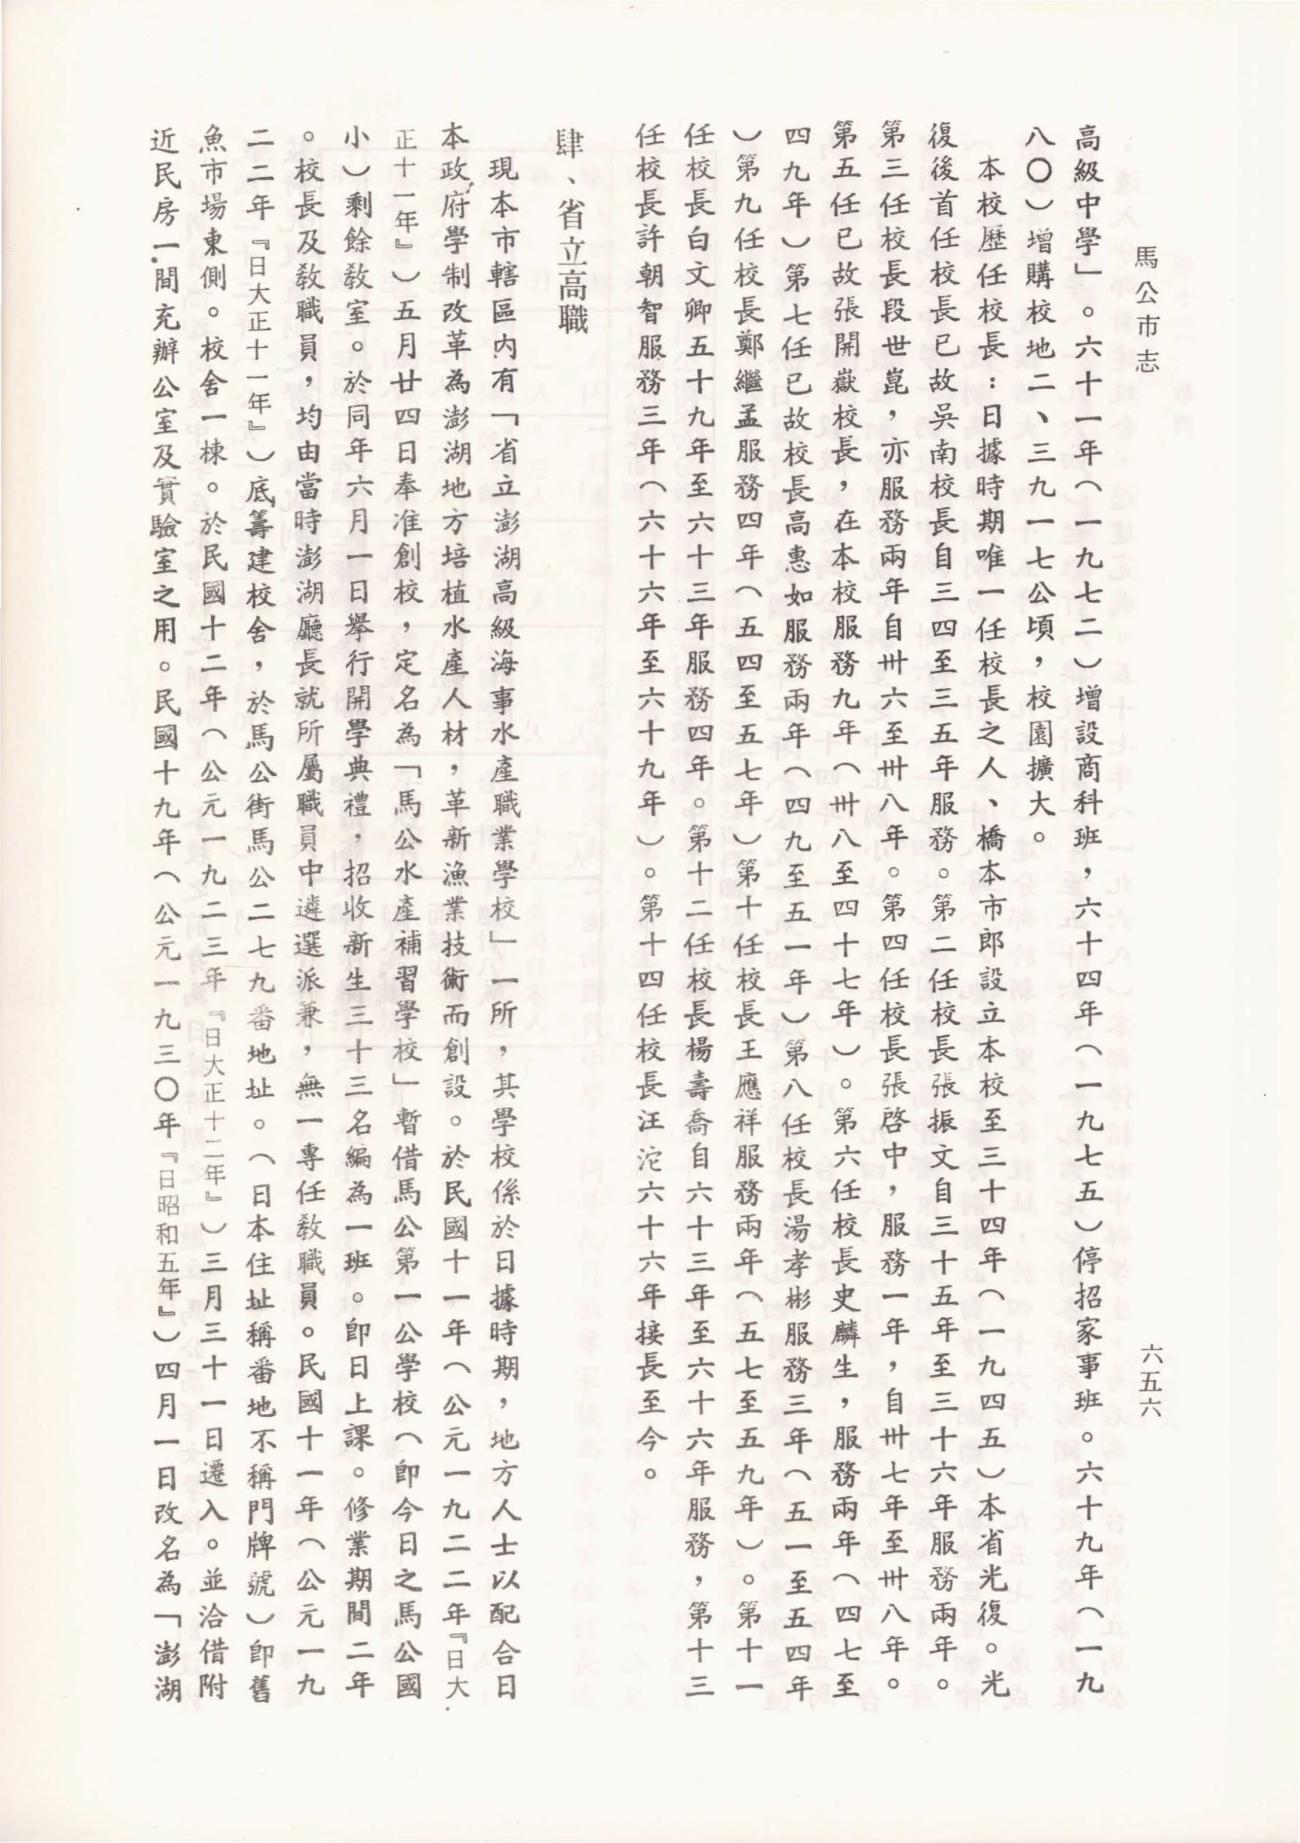 馬公市志
六五六
高級中學」。六十一年（一九七二）增設商科班，六十四年（一九七五）停招家事班。六十九年（一九
八〇）增購校地二、三九一七公頃，校園擴大。
本校歷任校長：日據時期唯一任校長之人、橋本市郎設立本校至三十四年（一九四五）本省光復。光
復後首任校長已故吳南校長自三四至三五年服務。第二任校長張振文自三十五年至三十六年服務兩年。
第三任校長段世崑，亦服務兩年自卅六至卅八年。第四任校長張啓中，服務一年，自卅七年至卅八年。
第五任已故張開嶽校長，在本校服務九年（卅八至四十七年）。第六任校長史麟生，服務兩年（四七至
四九年）第七任已故校長高惠如服務兩年（四九至五一年）第八任校長湯孝彬服務三年（五一至五四年
）第九任校長鄭繼孟服務四年（五四至五七年）第十任校長王應祥服務兩年（五七至五九年）。第十一
任校長白文卿五十九年至六十三年服務四年。第十二任校長楊壽喬自六十三年至六十六年服務，第十三
任校長許朝智服務三年（六十六年至六十九年）。第十四任校長汪沱六十六年接長至今。
肆、省立高職
現本市轄區內有「省立澎湖高級海事水產職業學校」一所，其學校係於日據時期，地方人士以配合日
本政府學制改革為澎湖地方培植水產人材，革新漁業技術而創設。於民國十一年（公元一九二二年『日大
正十一年』）五月廿四日奉准創校，定名為「馬公水產補習學校」暫借馬公第一公學校（卽今日之馬公國
小）剩餘敎室。於同年六月一日舉行開學典禮，招收新生三十三名編為一班。卽日上課。修業期間二年
。校長及敎職員，均由當時澎湖廳長就所屬職員中遴選派兼，無一專任敎職員。民國十一年（公元一九
二二年『日大正十一年』）底籌建校舍，於馬公街馬公二七九番地址。（日本住址稱番地不稱門牌號）卽舊
魚市場東側。校舍一棟。於民國十二年（公元一九二三年『日大正十二年』）三月三十一日遷入。並洽借附
近民房一間充辦公室及實驗室之用。民國十九年（公元一九三〇年『日昭和五年』）四月一日改名為「澎湖